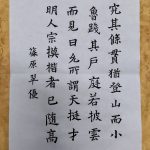 究其條貫猶登山而小
魯踐其戶庭若披雲
而見日允所謂天挺才
明人宗模楷者已隨高
篠原早優